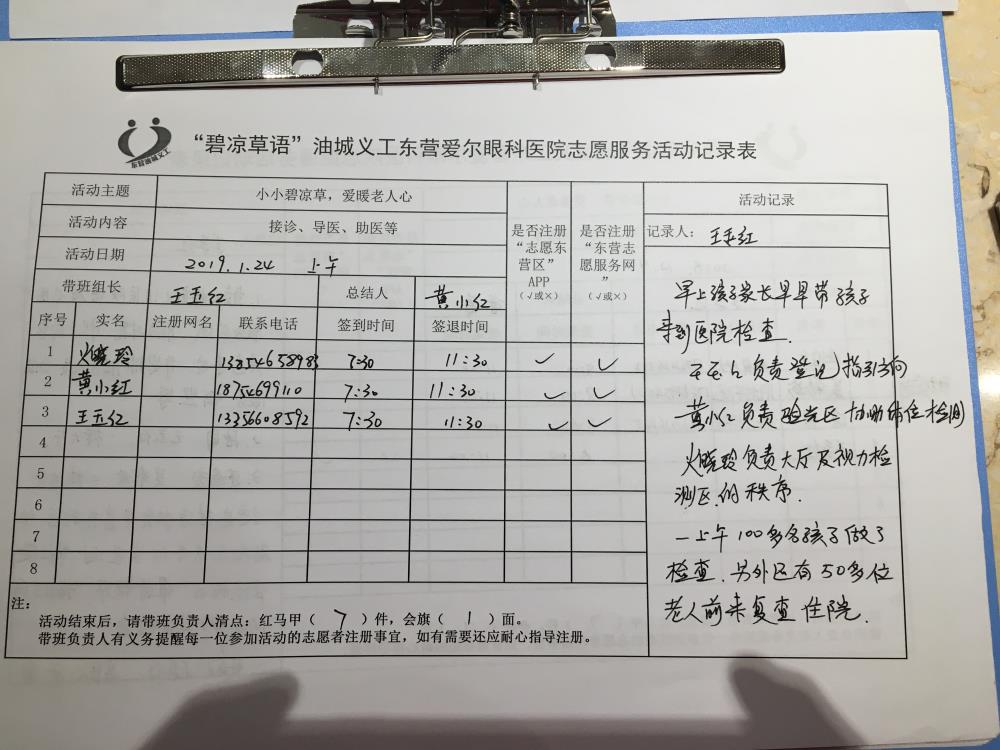 “碧凉草语”油城义工东营爱尔眼科医院志愿服务活动记录表
活动主题 小小碧凉草，爱暖老人心
活动内容 接诊、导医、助医等
活动日期 2019.1.24 上午
带班组长 王玉红 总结人 黄小红
序号 实名 注册网名 联系电话 签到时间 签退时间
是否注册
“志愿东
营区”
APP
（√或×）
是否注册
“东营志
愿服务网
”
（√或×）
1 火晓玲 13854658983 7:30 11:30 √ √
2 黄小红 18754699110 7:30 11:30 √ √
3 王玉红 13356608592 7:30 11:30 √ √
4
5
6
7
8
注：
活动结束后，请带班负责人清点：红马甲（ 7 ）件，会旗（ 1 ）面。
带班负责人有义务提醒每一位参加活动的志愿者注册事宜，如有需要还应耐心指导注册。
活动记录
记录人： 王玉红
早上孩子家长早早带孩子
来到医院检查.
负责登记指引方向
黄小红负责验光区协助 检测
火晓玲负责大厅及视力检
测区的秩序.
一上午100多名孩子做了
检查.另外还有50多位
老人前来复查住院.